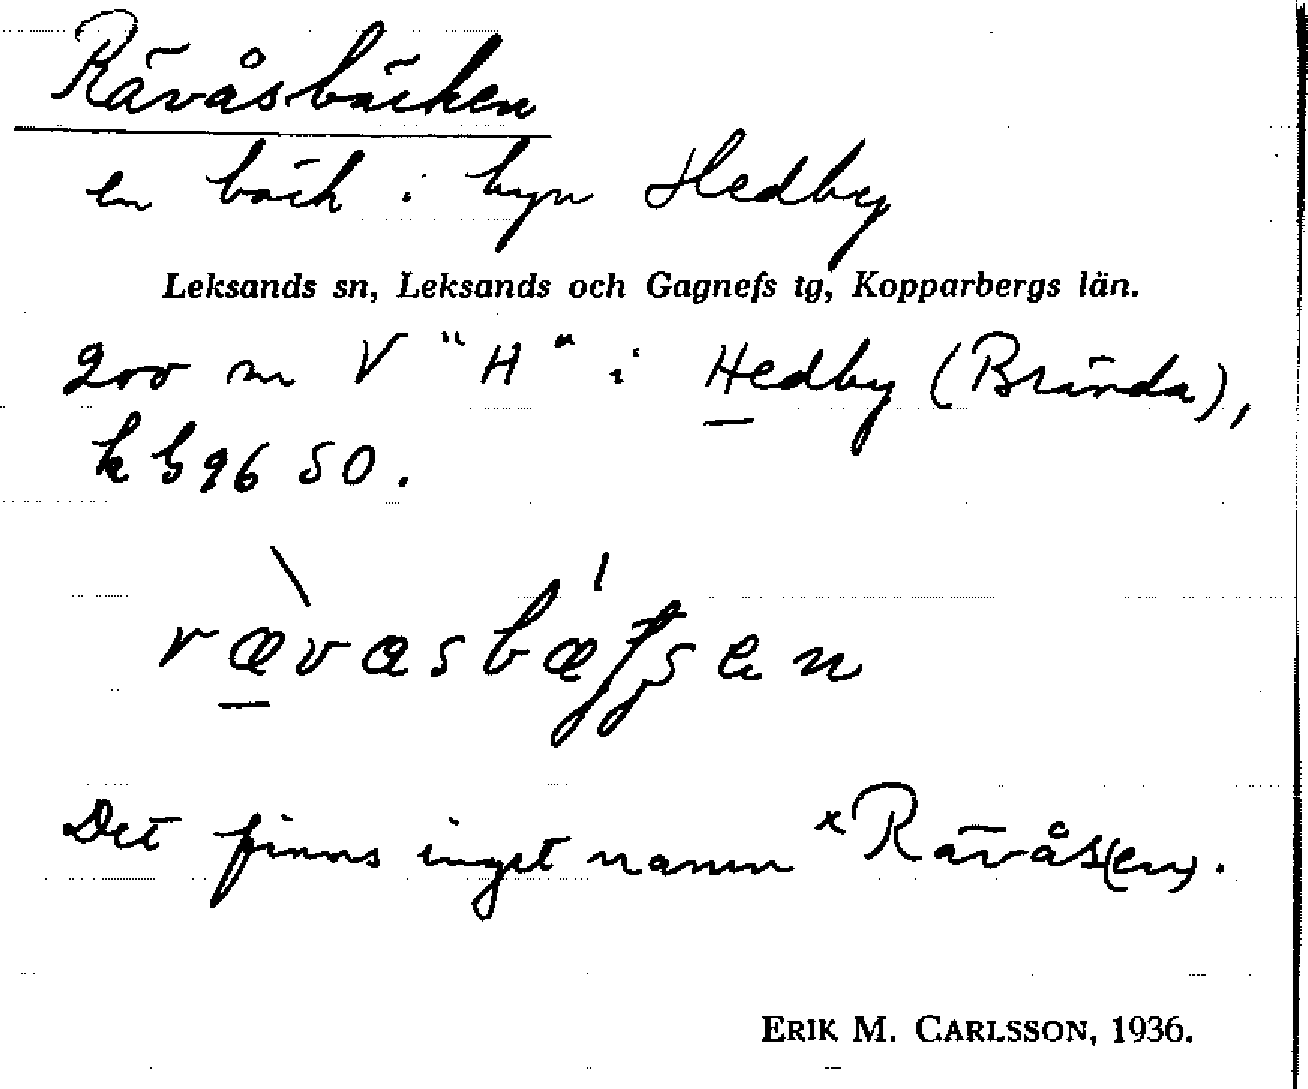 Rävåsbäcken
en bäck i byn Hedby
Leksands sn, Leksands och Gagnefs tg, Kopparbergs län.
200 m V "H" i Hedby (Brända),
k b 96 50.
Det finns inget namn ×Rävås(en).
ERIK M. CARLSSON, 1936.